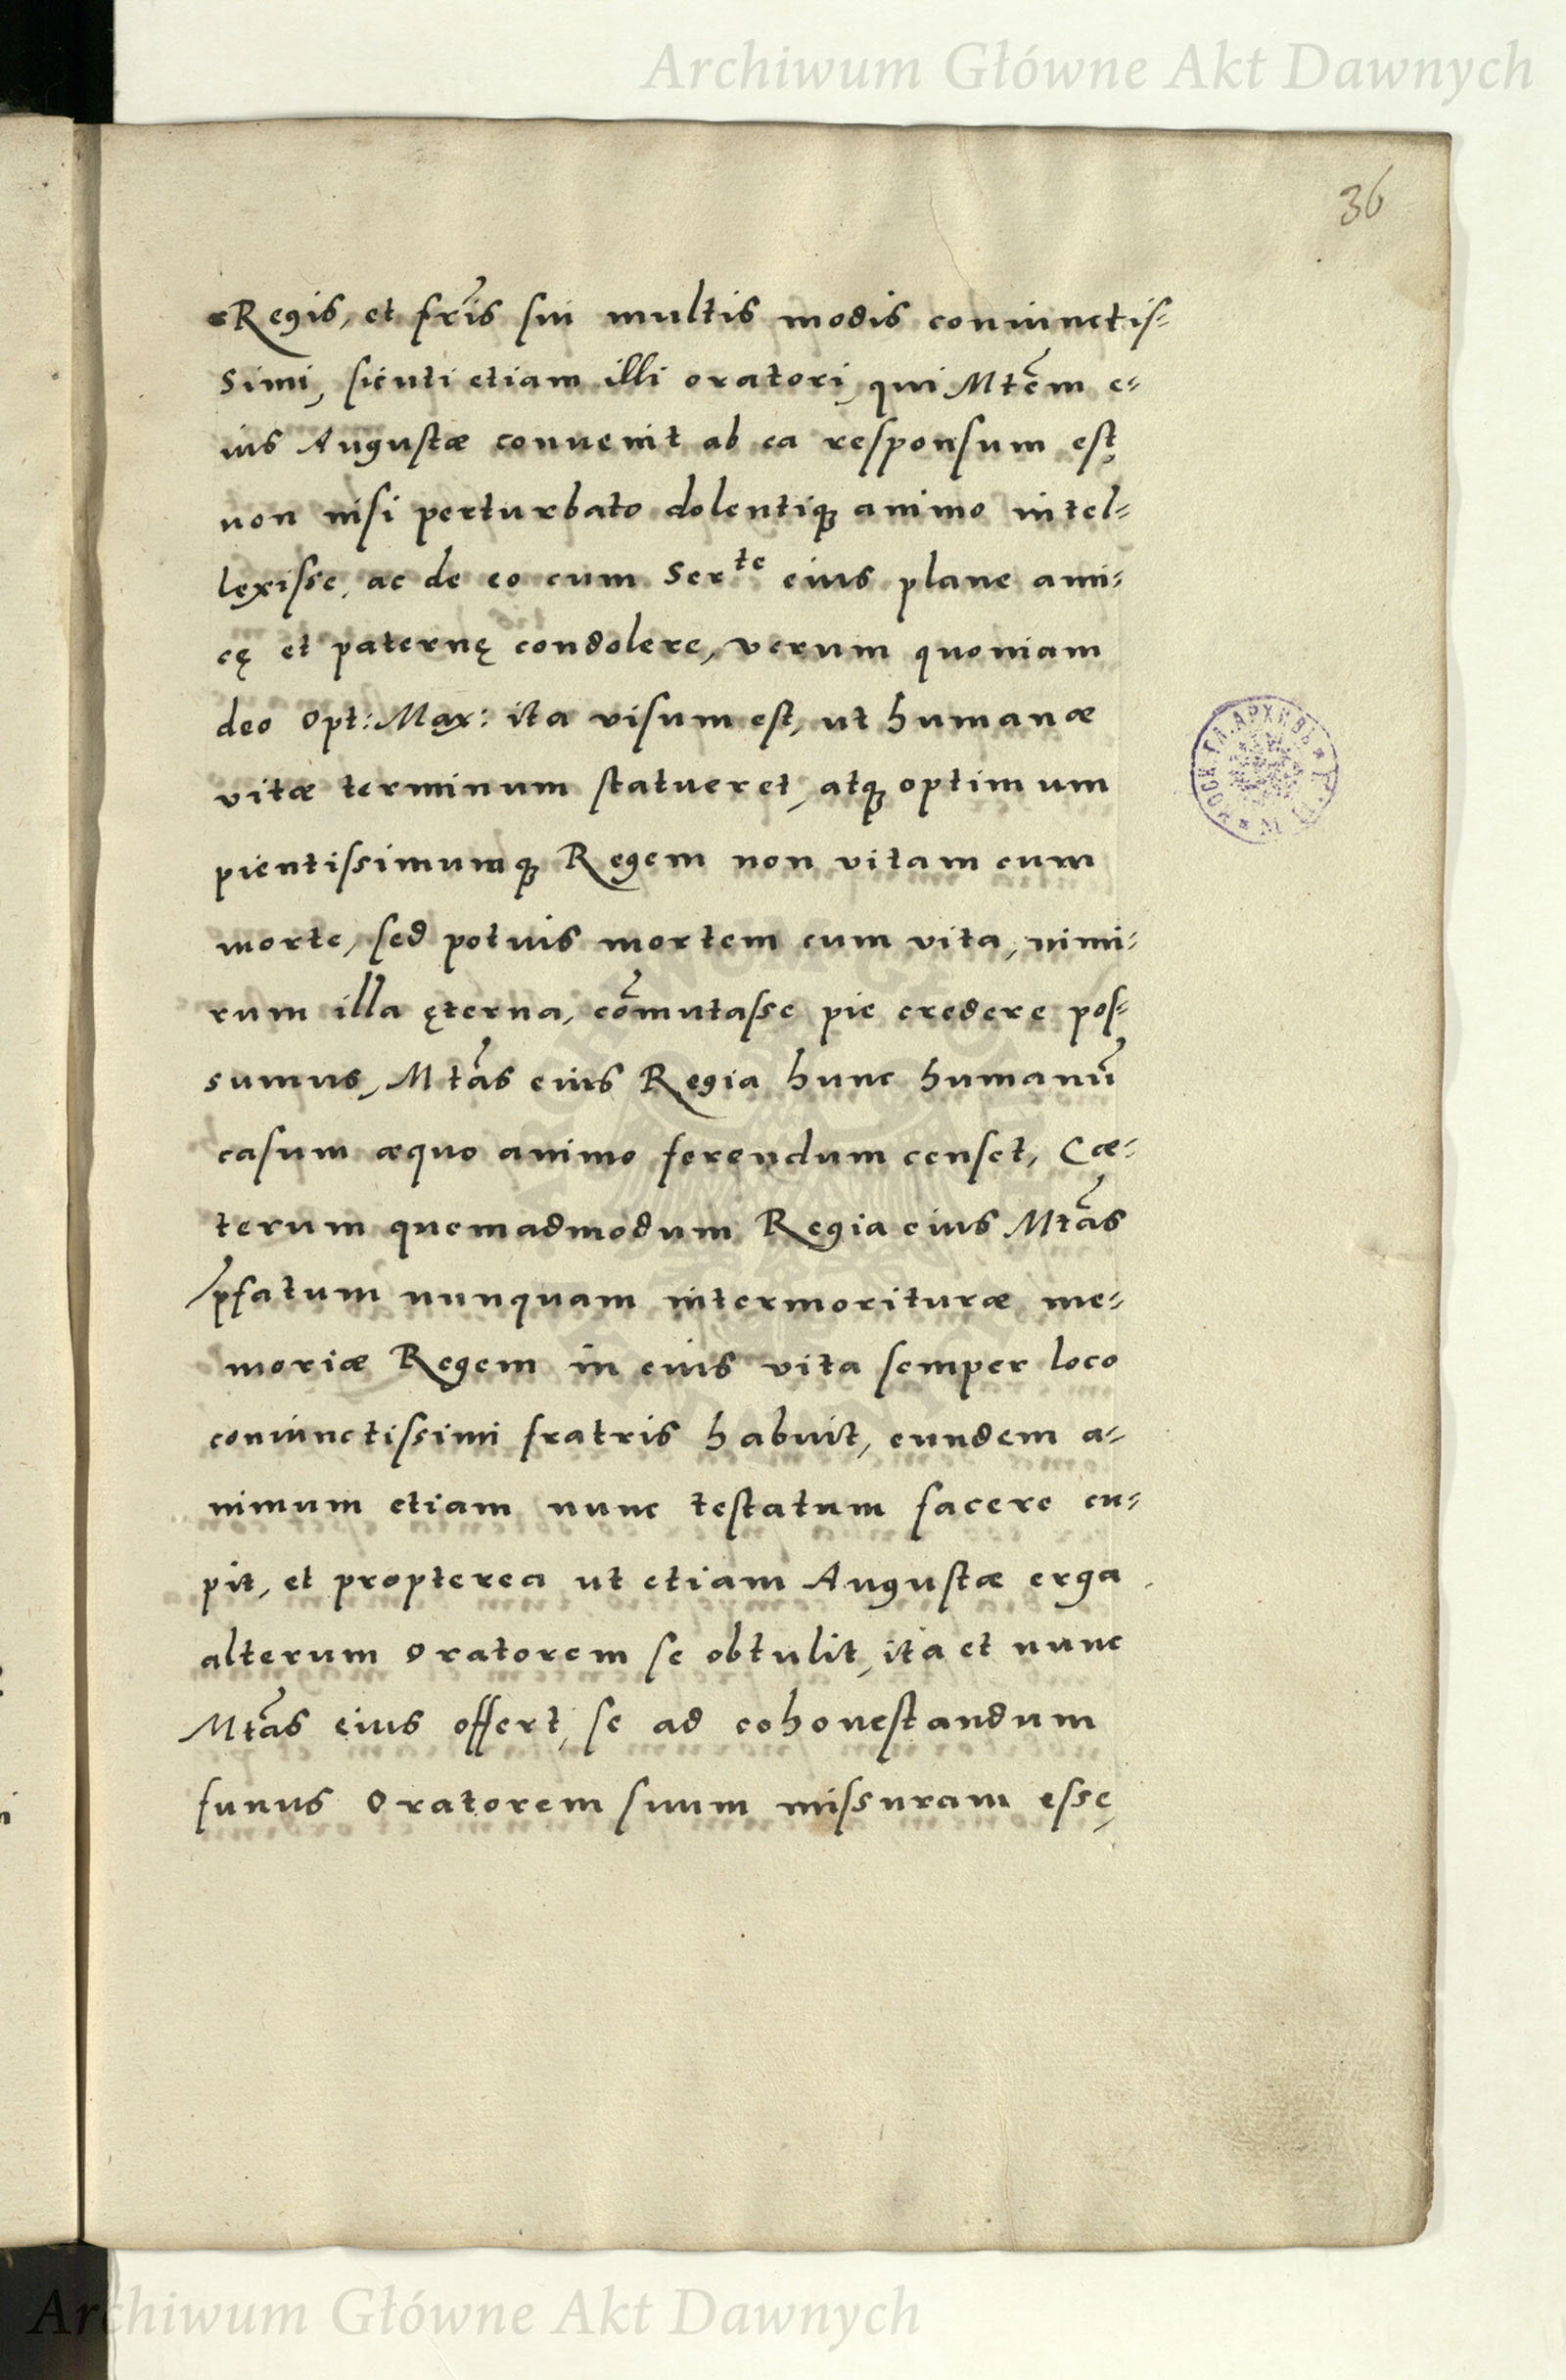 Archiwum Główne Akt Dawnych
36
Regis, et fr̃is sui multis modis coniunctis=
simi, sicuti etiam illi oratori, qui Mtẽm e=
ius Augustæ conuenit ab ea responsum est,
non nisi perturbato dolentiq; animo intel=
lexisse, ac de eo cum Ser^te eius plane ami=
cę et paternę condolere, verum quoniam
deo Opt: Max: ita visum est, ut humanæ
vitæ terminum statueret, atq; optimum
pientissimumq; Regem non vitam cum
morte, sed potuis mortem cum vita, nimi=
rum illa ęterna, com̃utasse pie credere pos=
sumus, Mtãs eius Regia hunc humanũ
casum æquo animo ferendum censet, Cæ=
terum quemadmodum Regia eius Mtãs
p̃fatum nunquam intermorituræ me=
moriæ Regem in eius vita semper loco
coniunctissimi fratris habuit, eundem a=
nimum etiam nunc testatum facere cu=
pit, et propterea ut etiam Augustæ erga
alterum Oratorem se obtulit, ita et nunc
Mtãs eius offert, se ad cohonestandum
funus Oratorem suum missuram esse,
Archiwum Główne Akt Dawnych